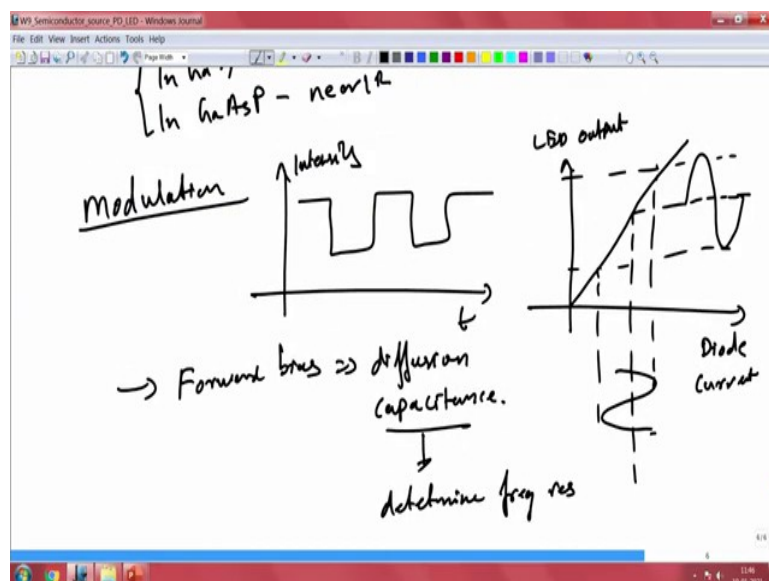 W9_Semiconductor_source_PD_LED - Windows Journal
File Edit View Insert Actions Tools Help
Page Width
B I
In Ga
In GaAsP - near IR
Modulation
Intensity
t
LED output
Diode
Current
→ Forward bias => diffusion
capacitance.
determine freq res
6/6
6
11:46